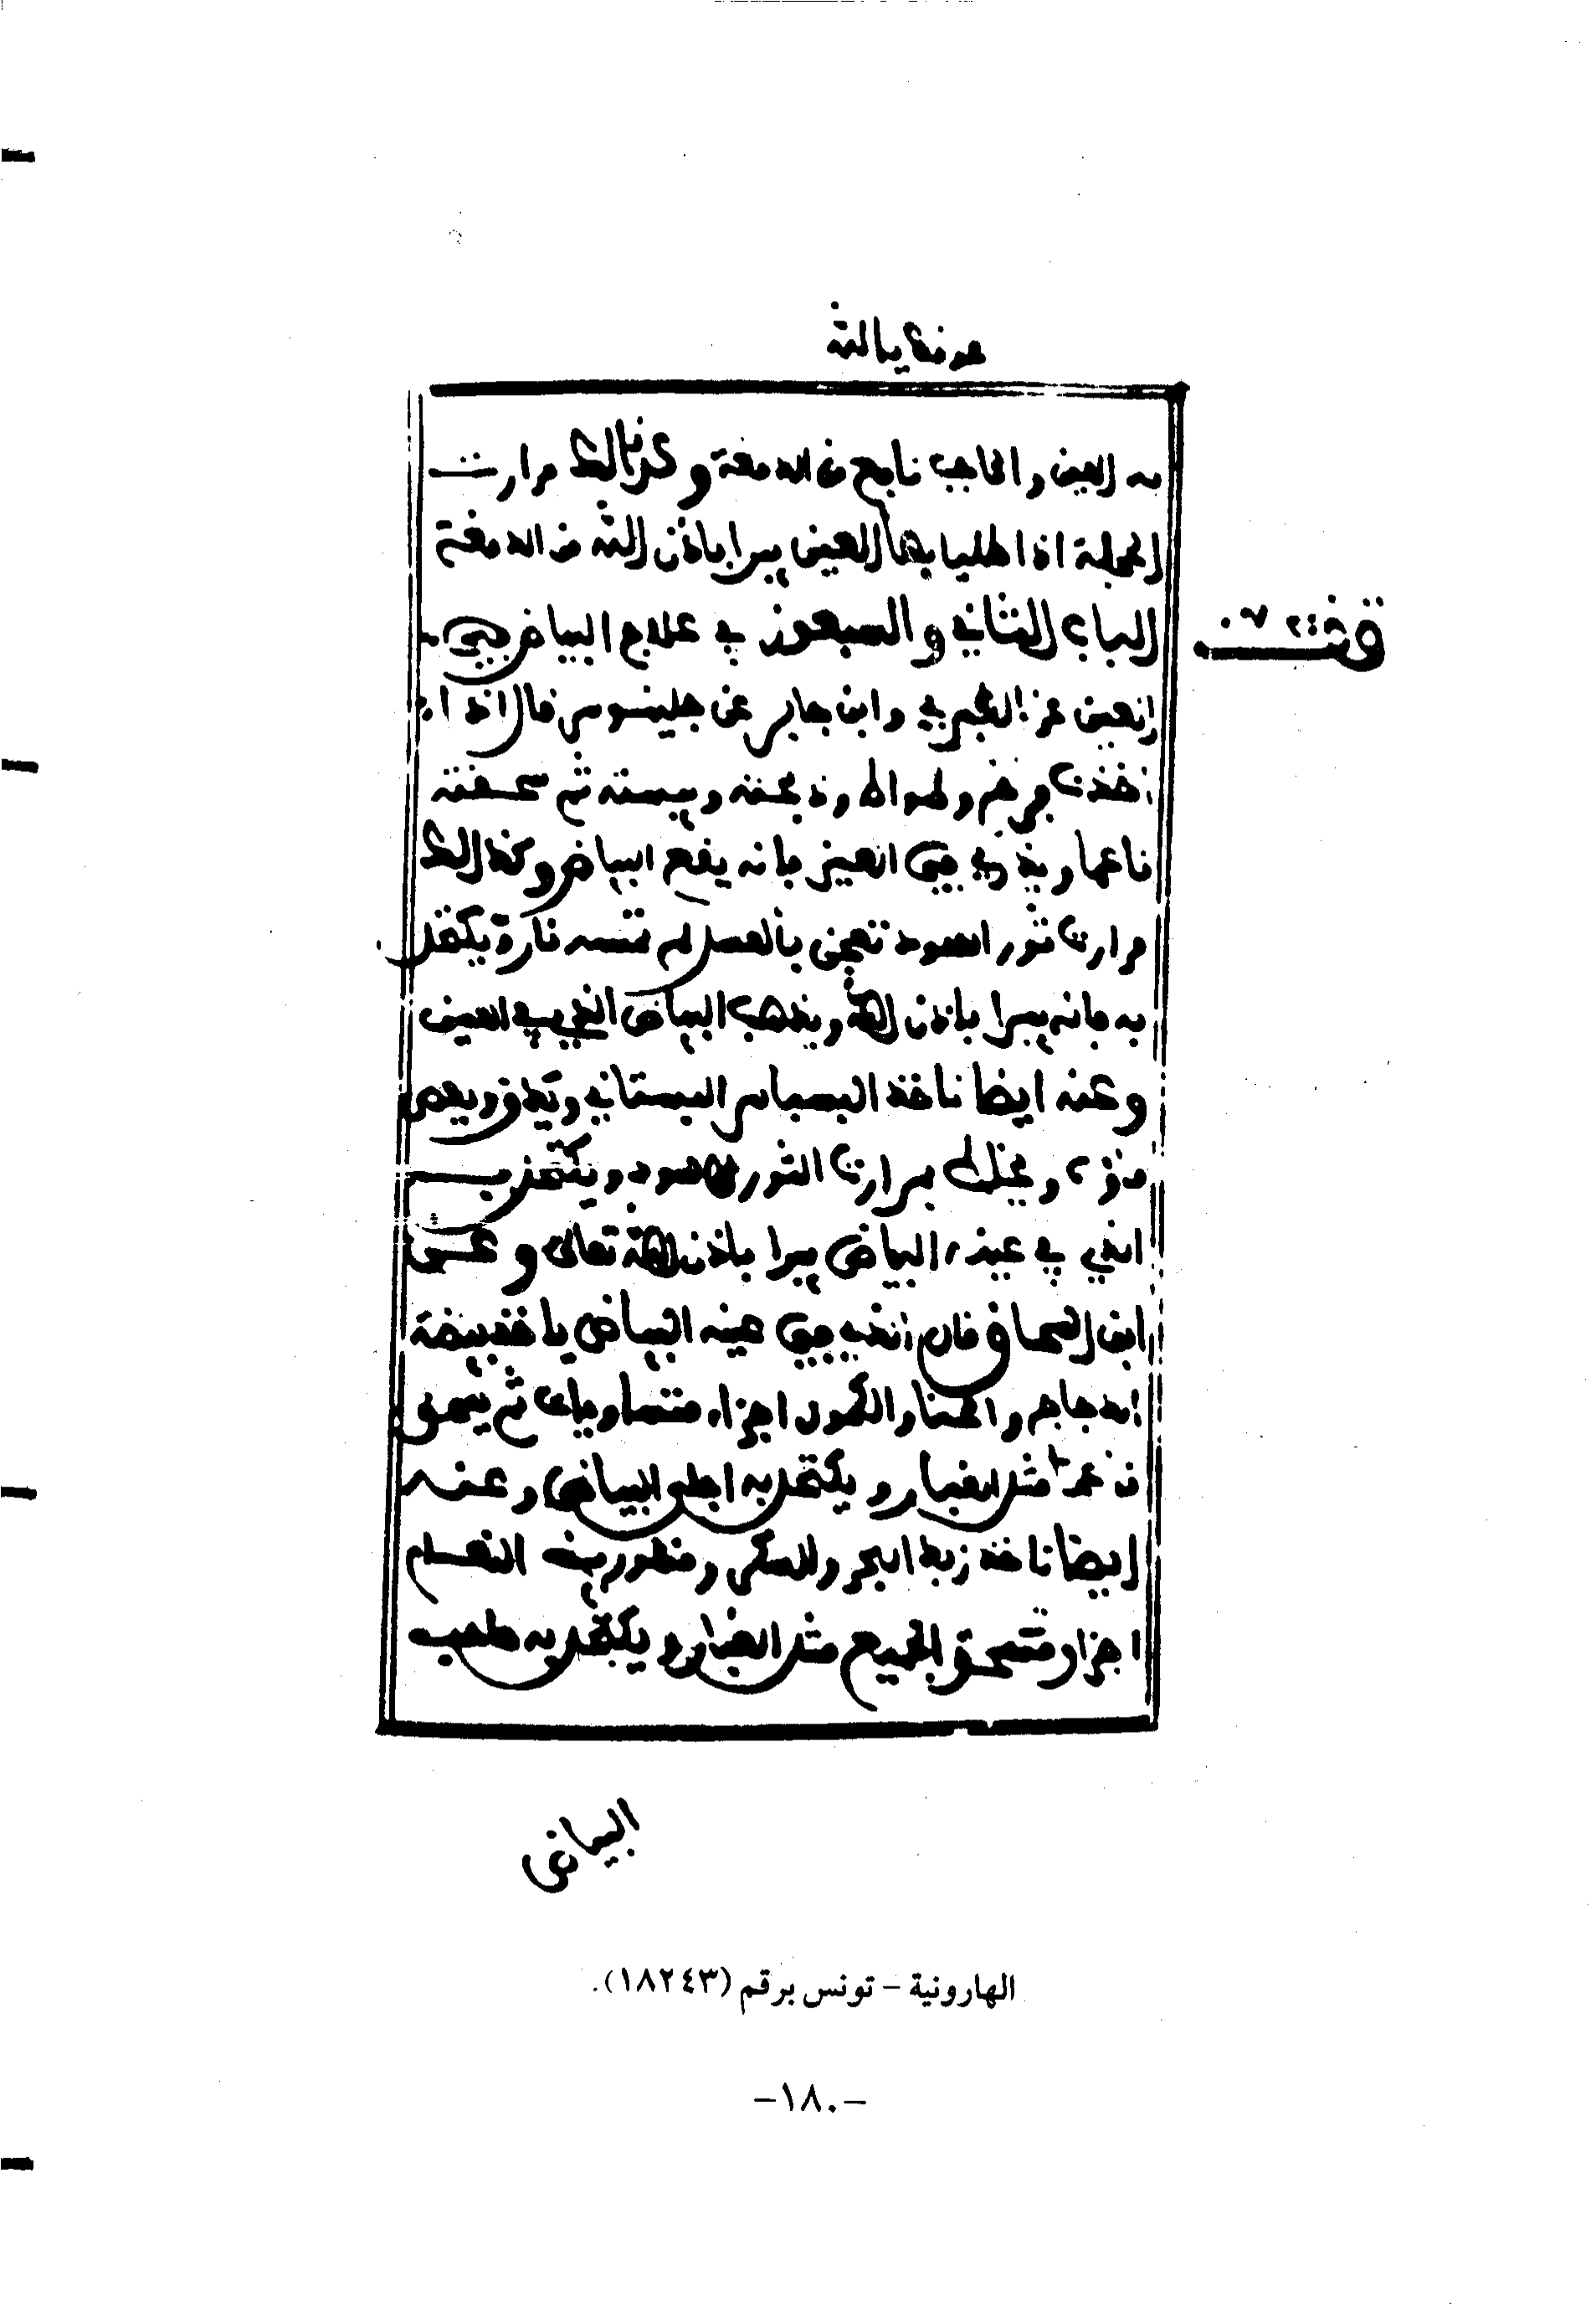 عونك يا الله
به العين والحاجب نابع من الدمعة وكذالك مرارت
الحجلة اذا طليا بها العين يبرا باذن الله من الدمعة
الباب الثاني والسبعون في علاج البياض في
العين عن وابن جابر عن جلينوس قال اذا
اخذت ولد وذبحته ويبسته ثم سحقته
ناعما ويذر في العين فانه يقلع البياض وكذالك
مرارت ثور اسود تعجن بالعسل لم تمسه نار ويكتحل
به فانه يبرا باذن الله ويذهب البياض الذي في العين
وعنه ايضا تاخذ البسباس البستاني ويدق ويعصر
ماؤه ويخلط بمرارت الثور الاسود ويكتحل به
الذي في عينه البياض يبرا باذن الله تعالى وعن
ابن اسحاق قال الذي في عينه البياض ياخذ بيضة
الدجاج والحنا والكمون اجزاء متساويات ثم يسحق
ناعما مثل الغبار ويكتحل به اجلى البياض وعنه
ايضا تاخذ زبد البحر والسكر النعام
اجزاء وتسحق الجميع مثل الغبار ويكتحل به صاحب
البياض
الهارونية - تونس برقم (١٨٢٤٣).
-١٨٠-